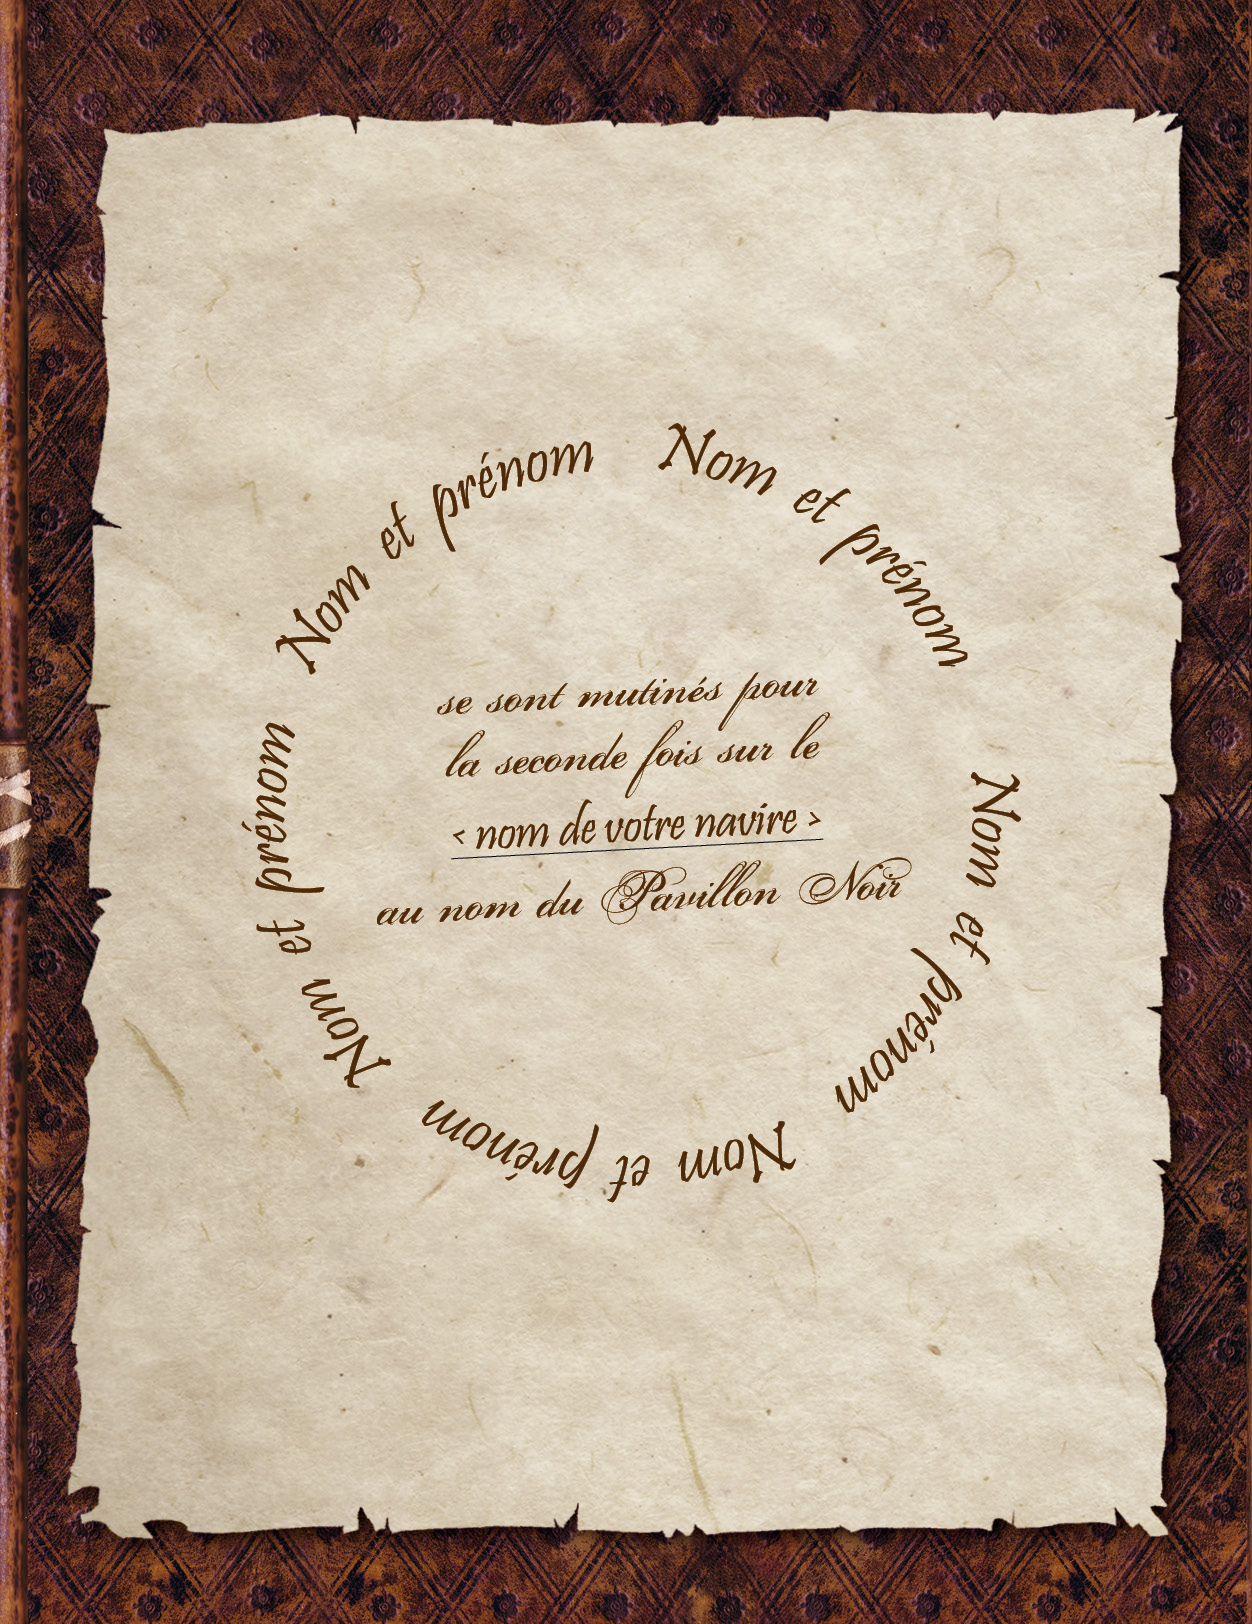 Nom et prénom
Nom et prénom
Nom et prénom
Nom et prénom
Nom et prénom
se sont mutinés pour
la seconde fois sur le
< nom de votre navire >
au nom du Pavillon Noir